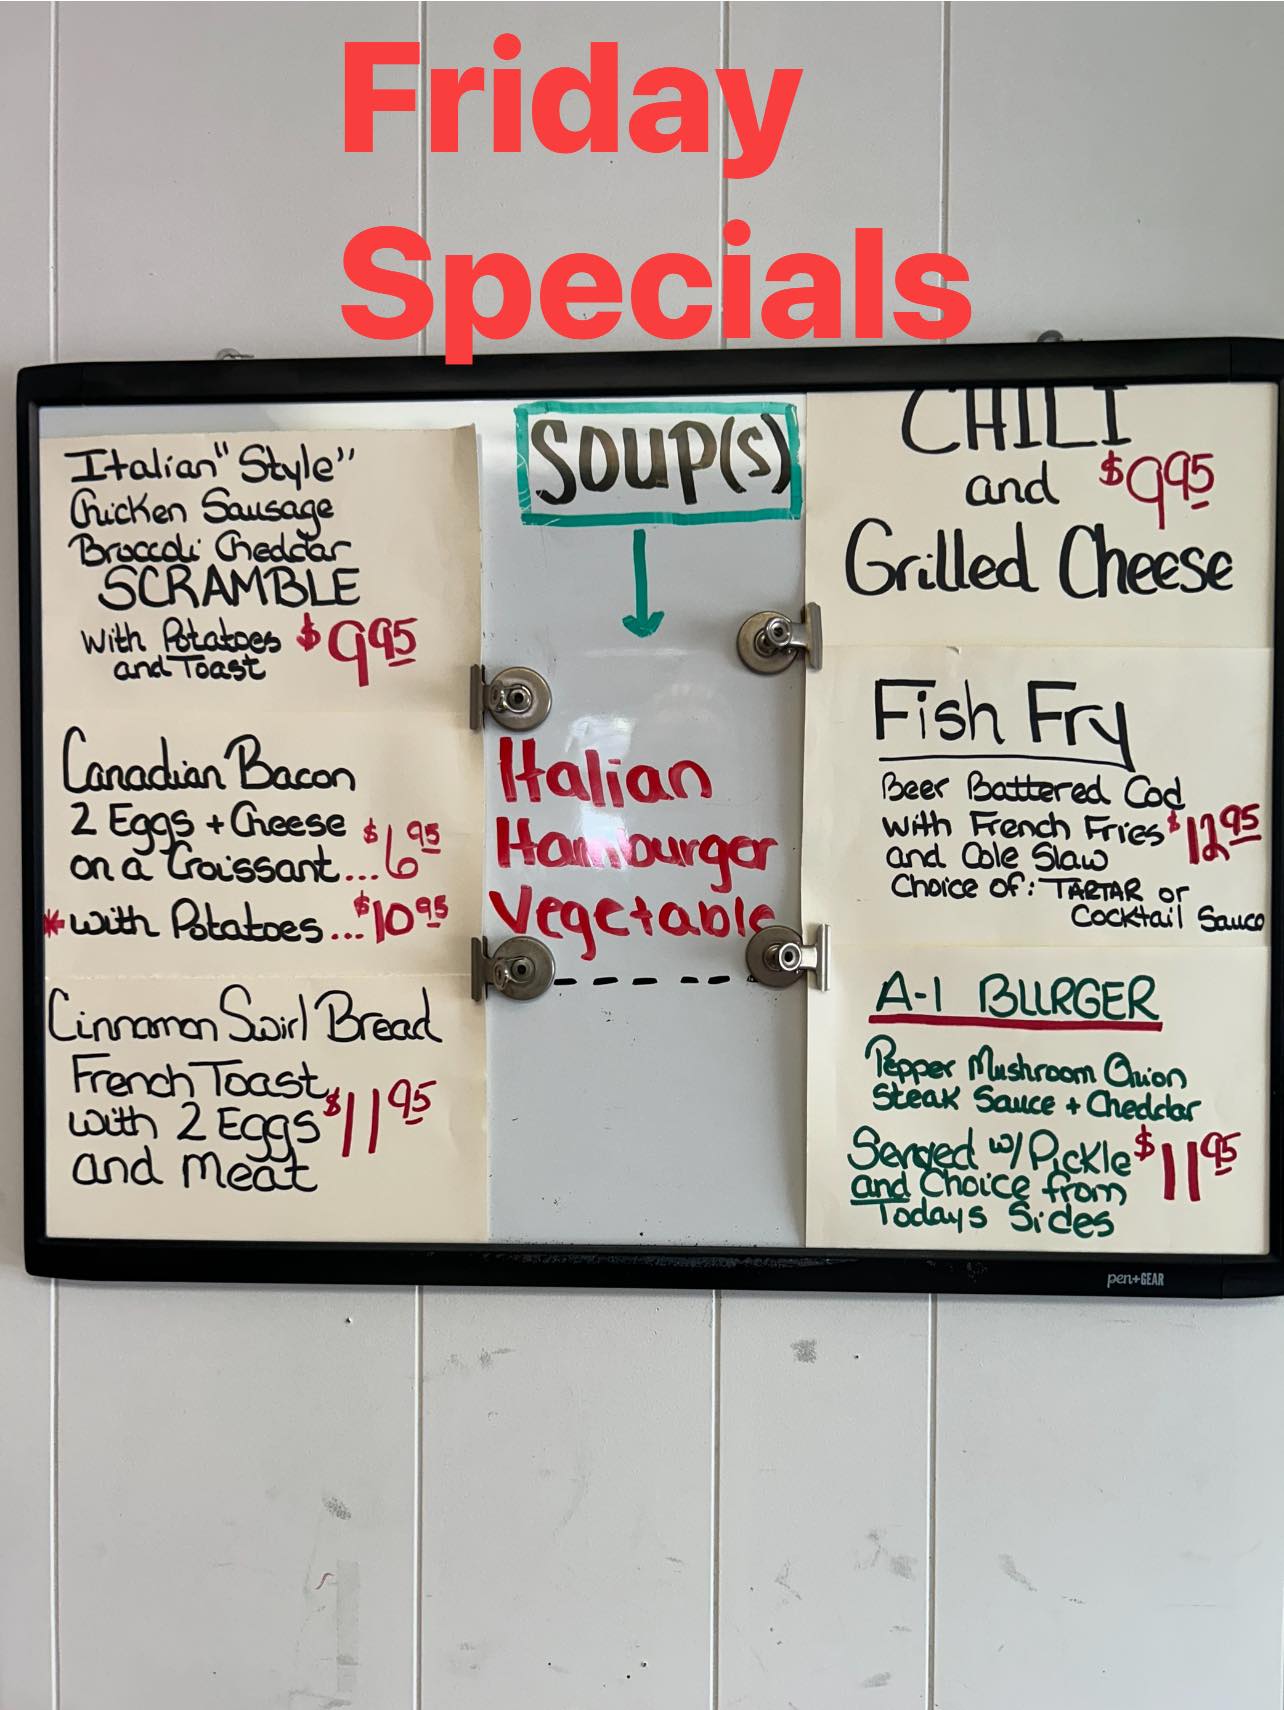 Friday
Specials
Italian "Style"
Chicken Sausage
Broccoli Cheddar
SCRAMBLE
with Potatoes $9.95
and Toast
Canadian Bacon
2 Eggs + Cheese
on a Croissant... $6.95
* with Potatoes... $10.95
Cinnamon Swirl Bread
French Toast
with 2 Eggs $11.95
and Meat
SOUP(S)
Italian
Hamburger
Vegetable
CHILI
and $9.95
Grilled Cheese
Fish Fry
Beer Battered Cod
with French Fries $12.95
and Cole Slaw
Choice of: TARTAR or
Cocktail Sauce
A-1 BURGER
Pepper Mushroom Onion
Steak Sauce + Cheddar
Served w/ Pickle $11.95
and Choice from
Todays Sides
pen+GEAR